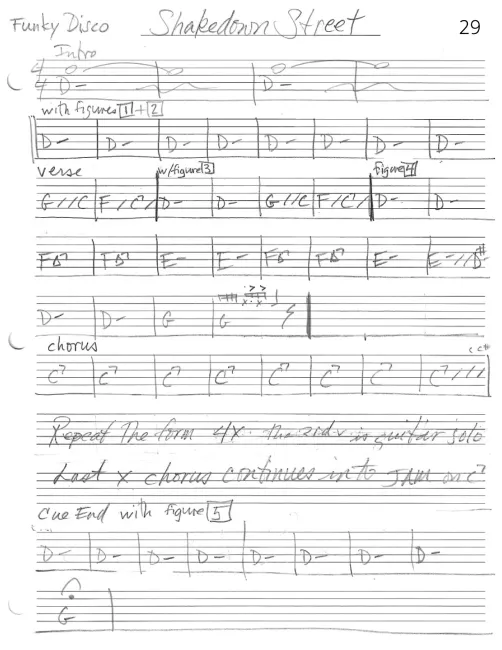 Funky Disco Shakedown Street 29
Intro
4/4 D- D-
with figures 1 + 2
D- D- D- D- D- D- D- D-
verse w/figure 3 figure 4
G//C F/C7/ D- D- G//C F/C7/ D- D-
FΔ7 FΔ7 E- E- FΔ7 FΔ7 E- E-//D#-
D- D- G G
chorus
C7 C7 C7 C7 C7 C7 C7 C7///
Repeat The form 4x. The 2nd v is guitar solo
Last x chorus continues into JAM on C7
Cue End with figure 5
D- D- D- D- D- D- D- D-
G